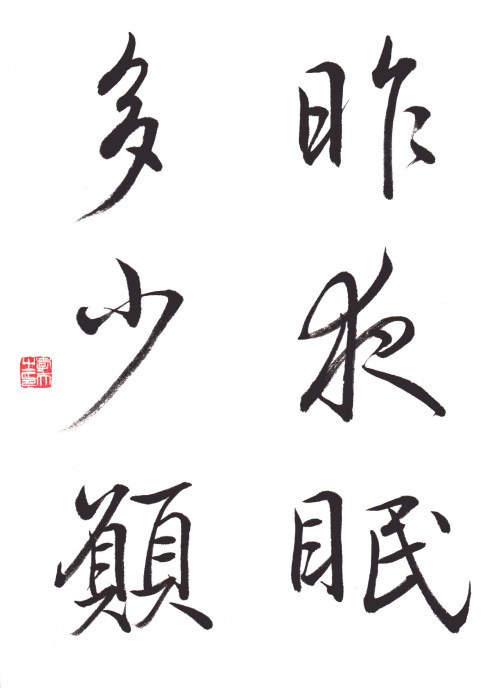 昨夜眠
多少